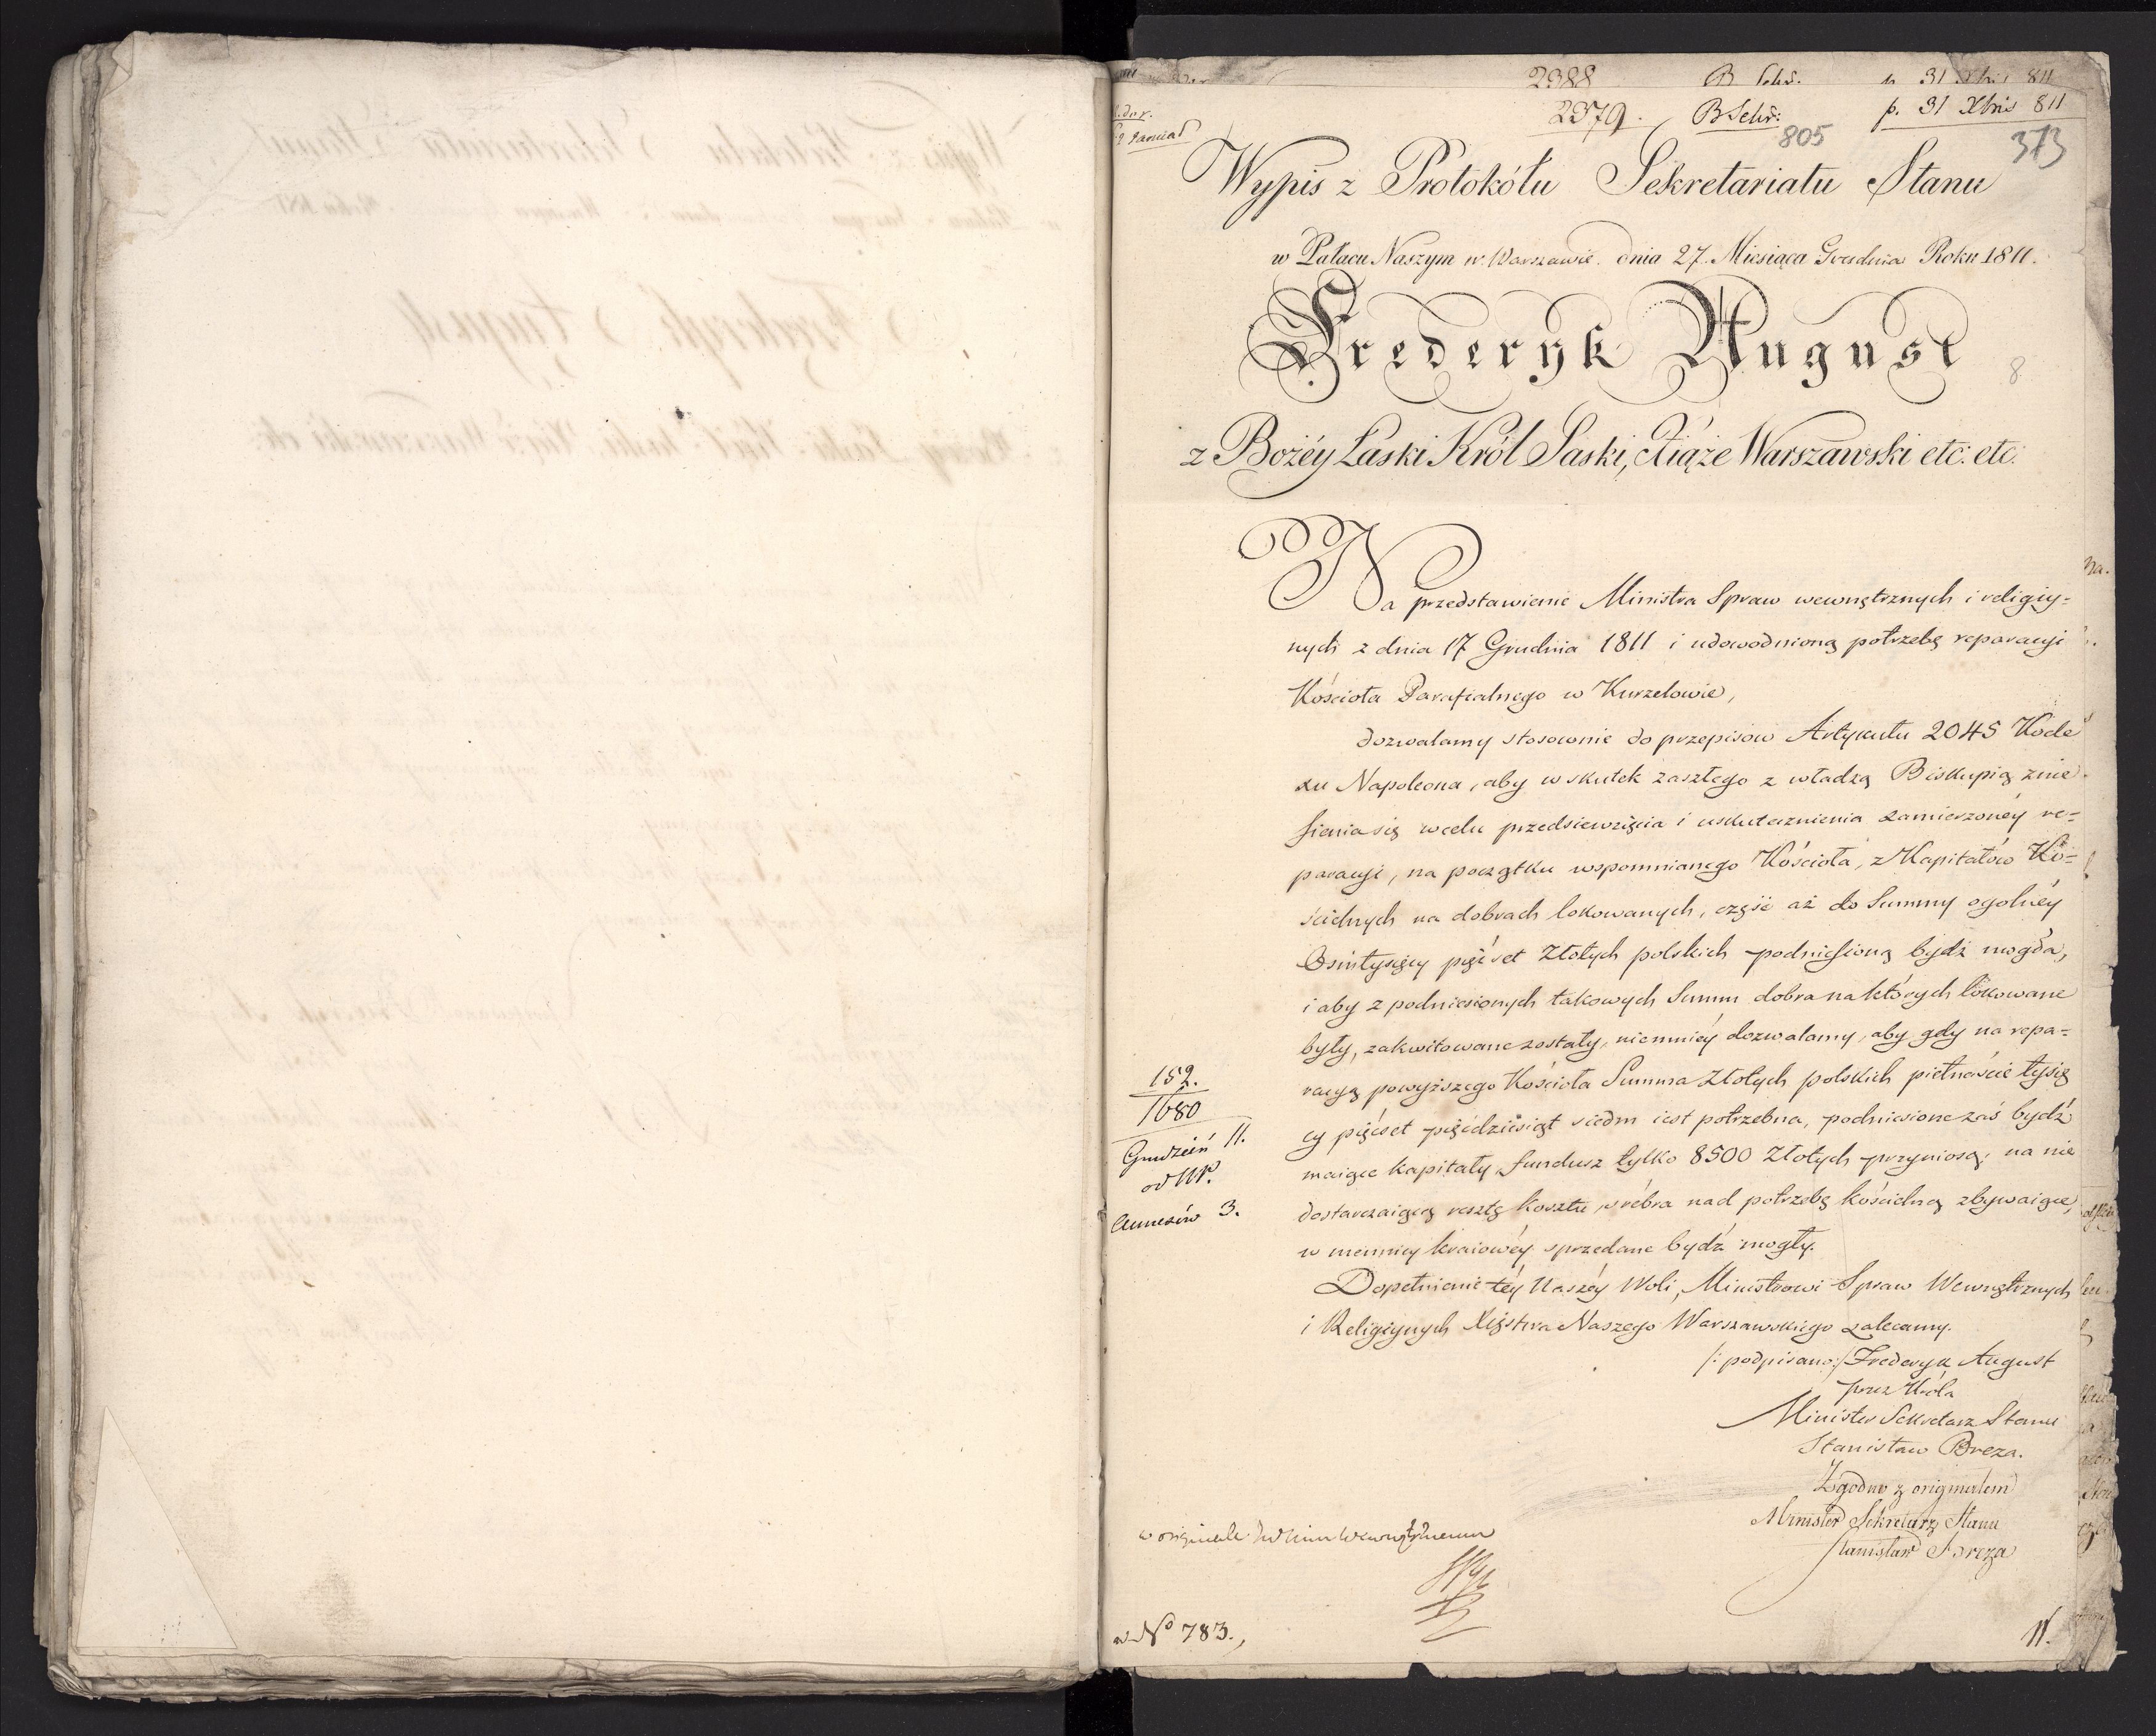 2388 B Schř. p. 31 Xbris 811
2379. B Schř: p. 31 Xbris 811
805
373
Wypis z Protokółu Sekretariatu Stanu
w Pałacu Naszym w Warszawie dnia 27. Miesiąca Grudnia Roku 1811.
Frederyk August
8
z Bożéy Łaski Król Saski, Xiąże Warszawski etc: etc.
Na przedstawienie Ministra Spraw wewnętrznych i religiy=
nych z dnia 17 Grudnia 1811 i udowodnioną potrzebę reparacyi
Kościoła Parafialnego w Kurzelowie,
dozwalamy stosownie do przepisow Artykułu 2045 Kode
xu Napoleona, aby w skutek zaszłego z władzą Biskupią znie
sienia się w celu przedsiewzięcia i uskutecznienia zamierzonéy re=
paracyi, na początku wspomnianego Kościoła, z Kapitałów Ko=
ścielnych na dobrach lokowanych, część aż do Summy ogolnéy
Osmtysięcy pięćset Złotych polskich podniesioną bydź mogła,
i aby z podniesionych takowych Summ dobra na których lokowane
były, zakwitowane zostały, niemniéy dozwalamy, aby gdy na repa=
racyą powyższego Kościoła Summa Złotych polskich pietnaście tysię
cy pięćset pięćdziesiąt siedm iest potrzebna, podniesione zaś bydź
maiące kapitały fundusz tylko 8500 Złotych przyniosą, na nie
dostarczaiącą resztę kosztu, srébra nad potrzebę kościelną zbywaiące,
w mennicy kraiowéy sprzedane bydź mogły.
Dopełnienie téy Naszéy Woli, Ministrowi Spraw Wewnętrznych
i Religiynych Xięstwa Naszego Warszawskiego zalecamy.
/: podpisano:/ Frederyk August
przez Króla
Minister Sekretarz Stanu
Stanisław Breza.
Zgodno z originałem
Minister Sekretarz Stanu
Stanisław Breza
152.
1680
Grudzień 11.
od NP.
Annexów 3.
w originale
w No 783.,
11.